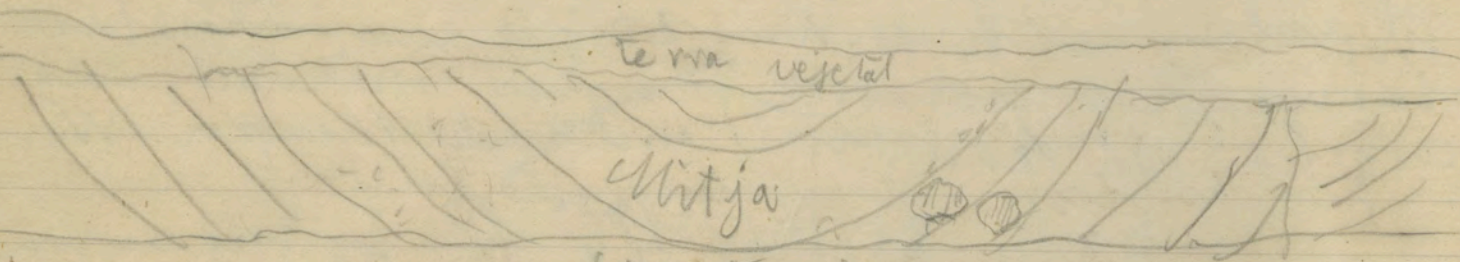 terra vejetal
Mitja